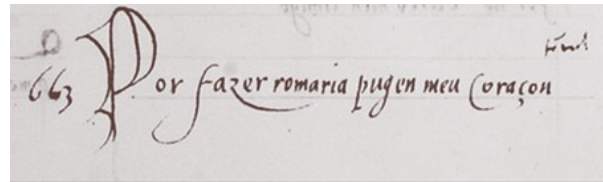 663 Por fazer romaria pugen meu Coraçon